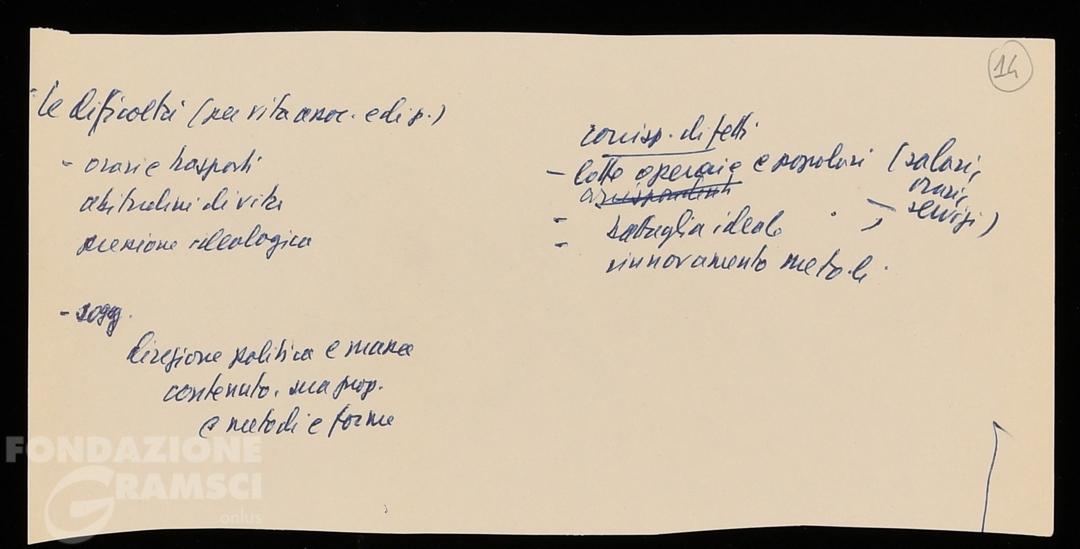 14
le difficoltà (per vita assoc. e di p.)
- orari e trasporti
abitudini di vita
pressione ideologica
- sogg.
direzione politica e massa
contenuto. ma prop.
e metodi e forme
corrisp. difetti
- lotte operaie e popolari (salari,
orari,
servizi)
- battaglia ideale
- rinnovamento metodi.
FONDAZIONE
GRAMSCI
onlus